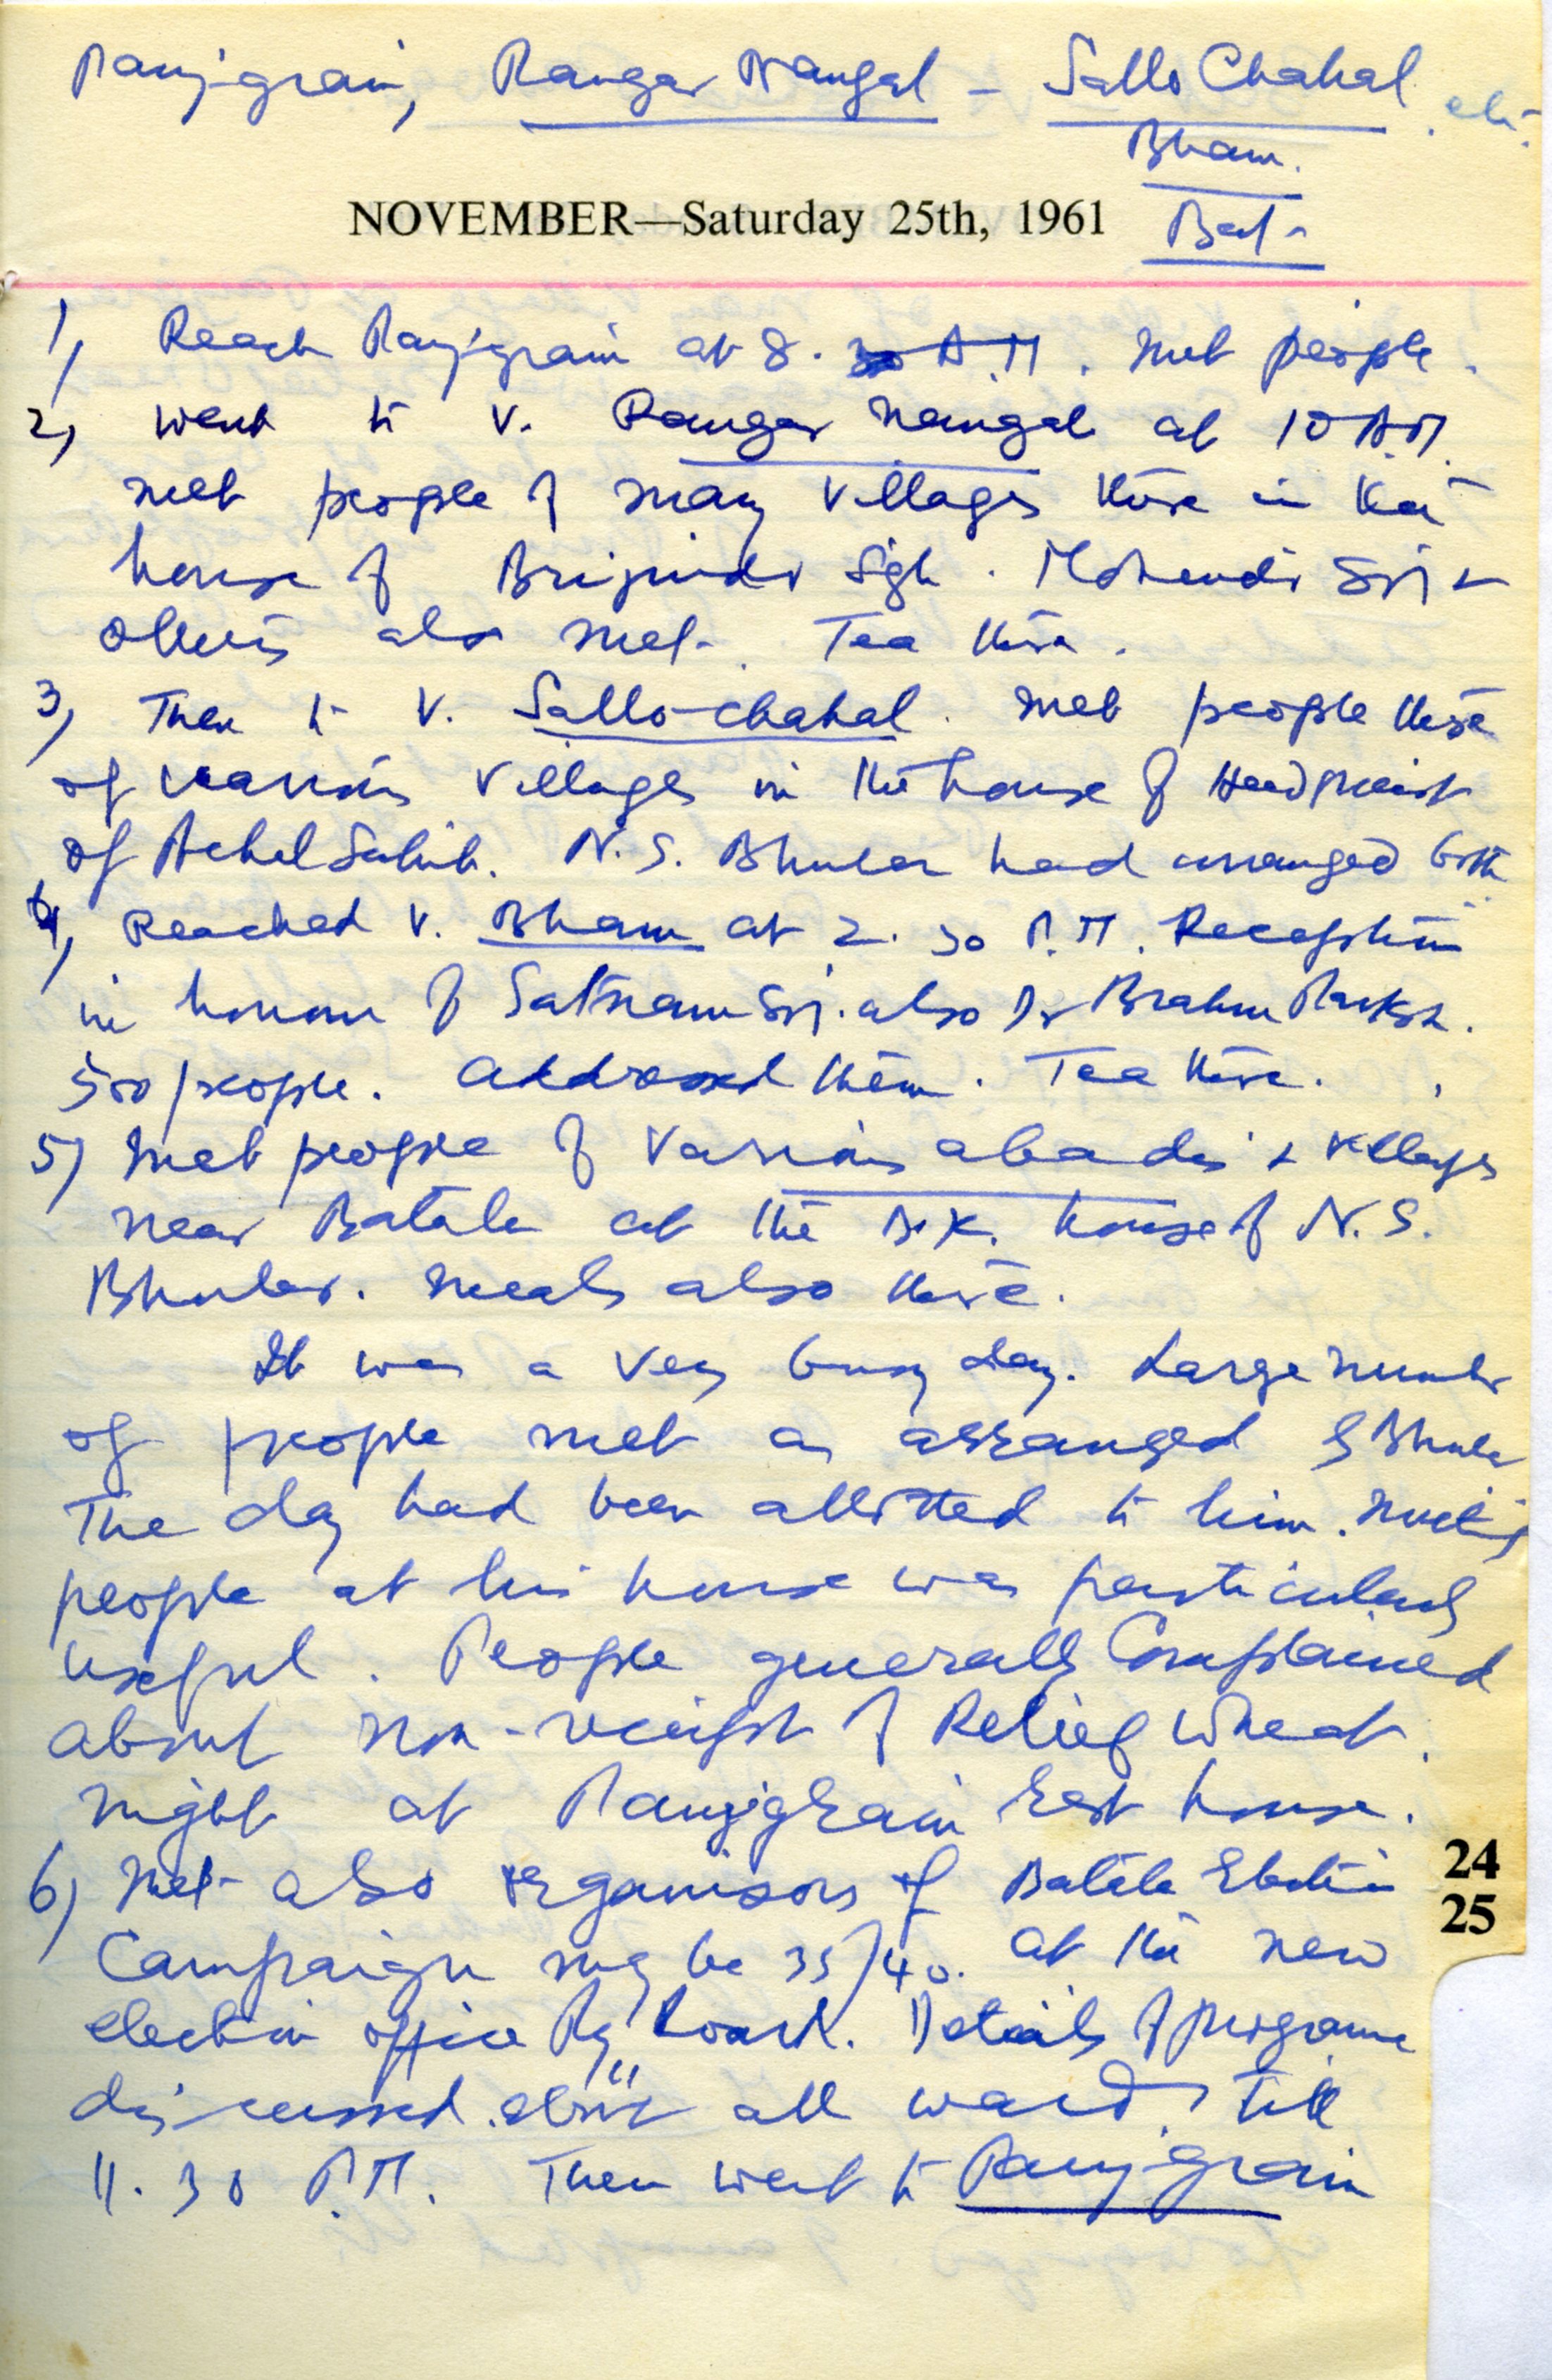 Panjgrain, Rangar Nangal - Sallo Chahal etc.
Bham.
NOVEMBER—Saturday 25th, 1961
Bat-
1, Reach Panjgrain at 8. A.M. met people.
2, went to v. Rangar Nangal at 10 A.M.
met people of many villages there in the
house of Brijinder Sgh. Mohender &
others also met. Tea there.
3, Then to V. Sallo-chahal. met people there
of various villages in the house of Head priest
of Achal Sahib. N.S. Bhuler had arranged both
4, Reached V. Bham at 2.30 P.M. Reception
in honour of Satnam also Dr Brahm Parksh.
500 people. addressed them. Tea there.
5) met people of various abadis & villages
near Batala at the B.K. house of N.S.
Bhuler. meals also there.
It was a very busy day. Large number
of people met as arranged by Bhuler
The day had been allotted to him. meeting
people at his house was particularly
useful. People generally complained
about non-receipt of Relief wheat.
night at Panjgrain rest house.
6) met also organisors of Batala Election
24
Campaign may be 35/40. at the new
25
election office Rly Road. Details of programe
discussed. all wards till
11.30 P.M. Then went to Panjgrain